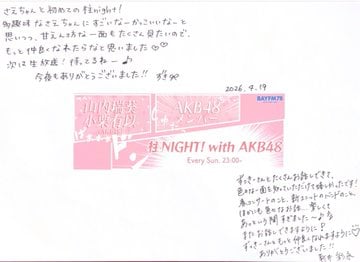 さえちゃんと初めての 柱night!
多趣味なさえちゃんにすごいなーかっこいいなーと
思いつつ、甘えん坊な一面もたくさん見たいので、
もっと仲良くなれたらなと思いました♡
次は生放送!待ってるねー♪
今夜もありがとうございました!!
2026.4.19
BAYFM78
山内瑞葵
小栗有以
(AKB48)
AKB48
メンバー
柱NIGHT! with AKB48
Every Sun. 23:00-
ずっきーさんとたくさんお話しできて、
色々な一面を知っていただけて嬉しかったです!
春コンサートのこと、新ユニットのバンドのこと、
ほかにも色々なお話... 楽しくて
あっという間すぎました〜♪
またお話しできますように♪
ずっきーさんともっと仲良くなれますように♡
ありがとうございました!!